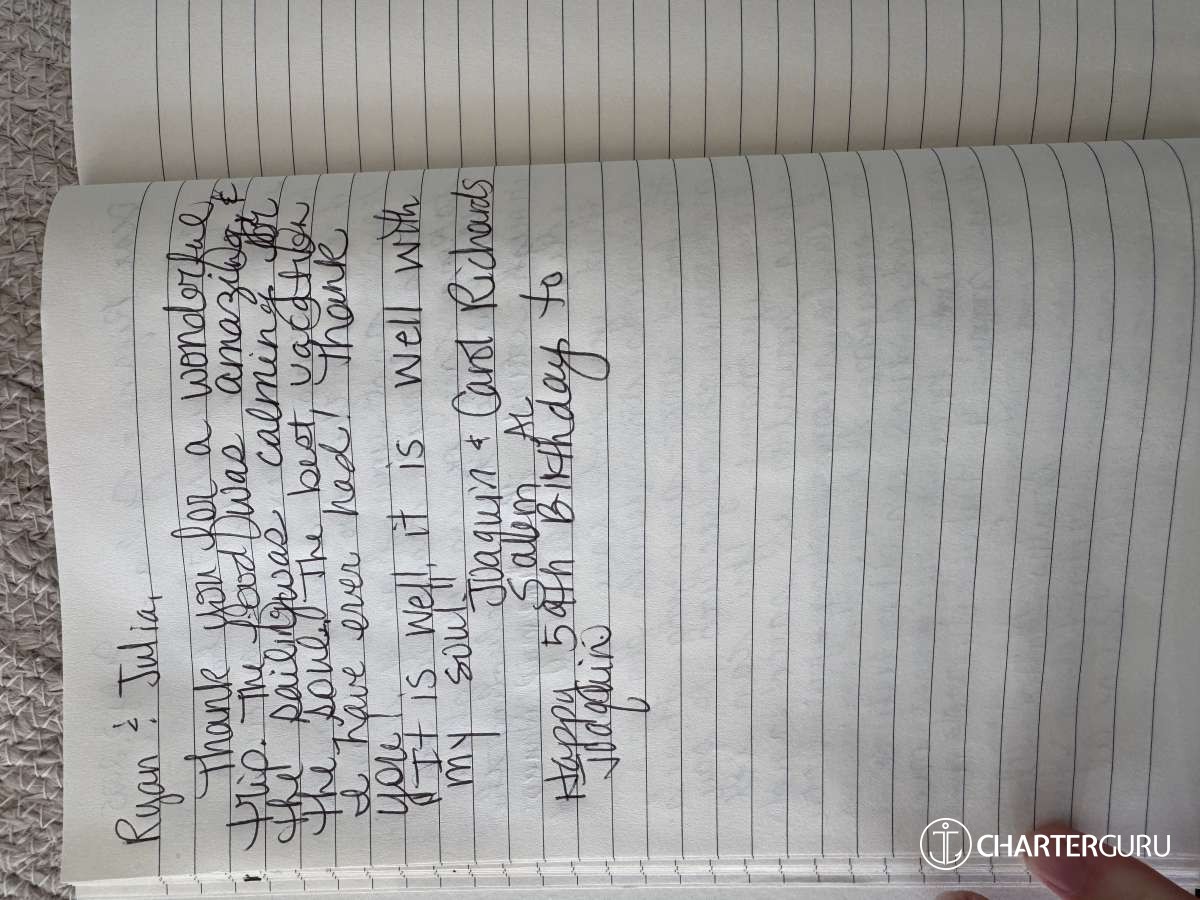 Ryan & Julia,
Thank you for a wonderful
trip. The food was amazing &
the sailing was calming for
the soul. The best vacation
I have ever had! Thank
you!
"It is well, it is well with
my soul."
Joaquin & Carol Richards
Salem AL
Happy 50th Birthday to
Joaquin
CHARTERGURU